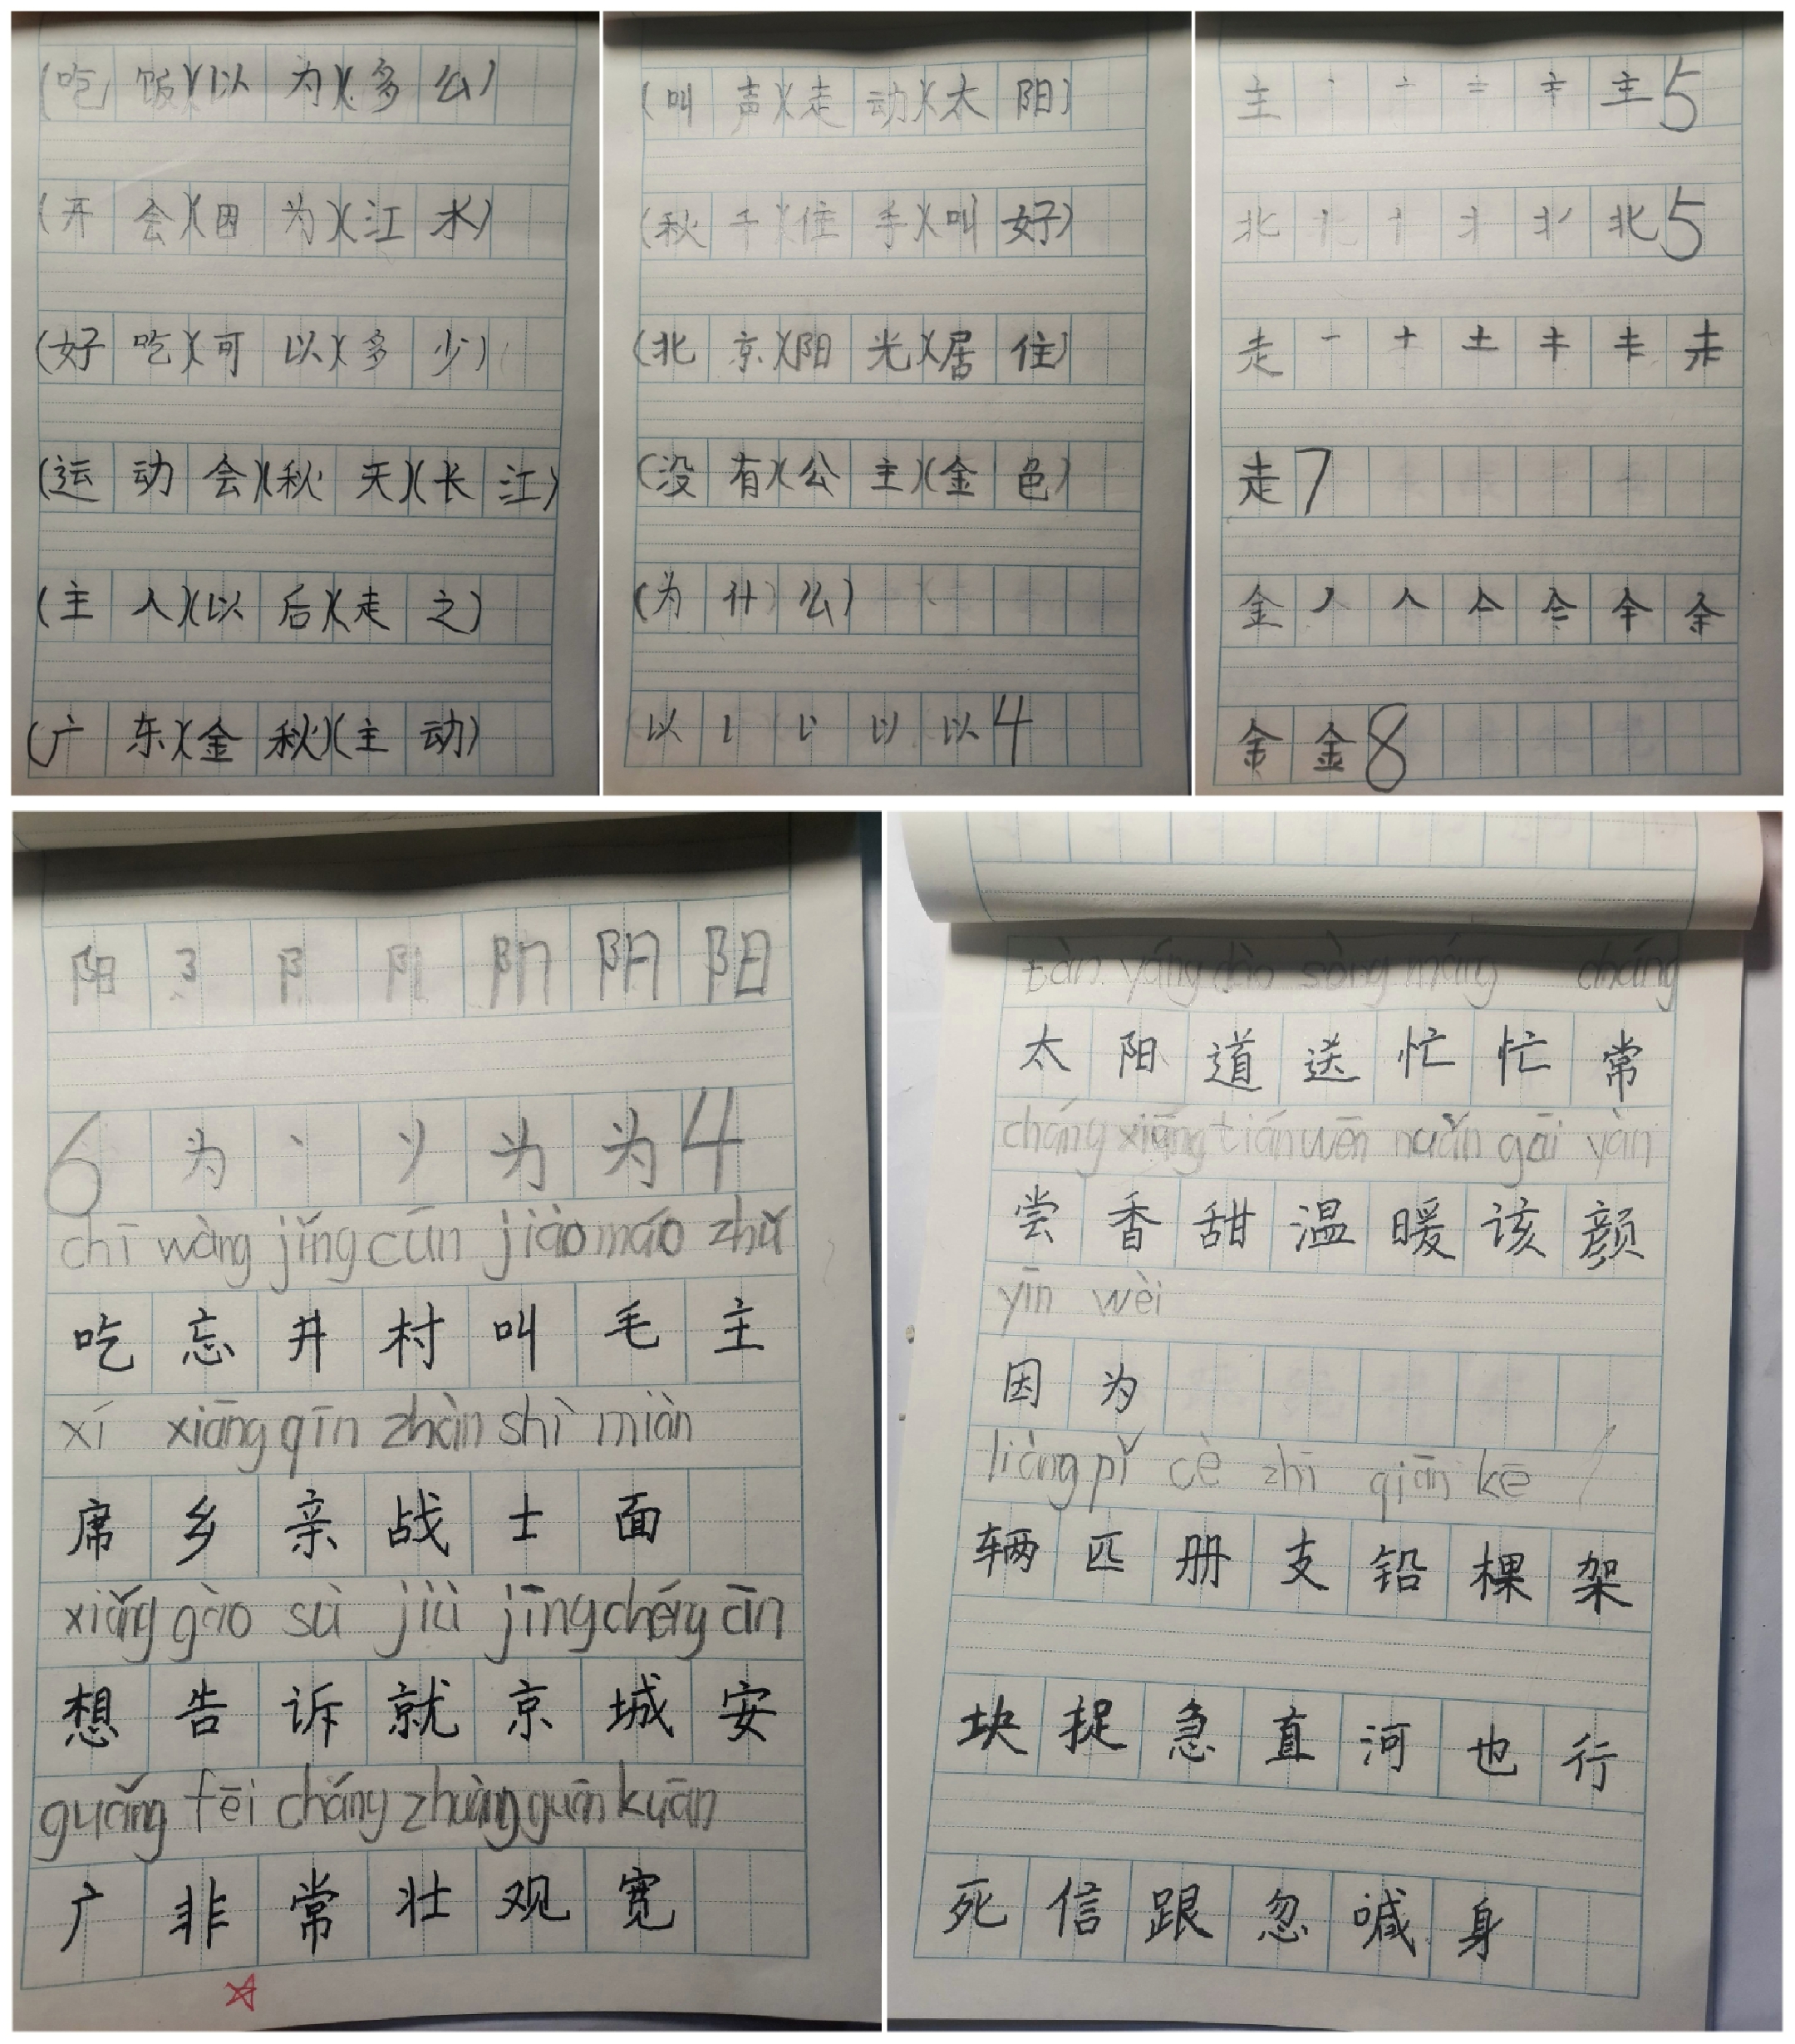 (吃饭)(以为)(多么)
(开会)(因为)(江水)
(好吃)(可以)(多少)
(运动会)(秋天)(长江)
(主人)(以后)(走之)
(广东)(金秋)(主动)
(叫声)(走动)(太阳)
(秋千)(住手)(叫好)
(北京)(阳光)(居住)
(没有)(公主)(金色)
(为什么)
以 以 4
主 丶 亠 主 5
北 北 5
走 一 十 土 走
走 7
金 丿 人 金
金 金 8
阳 阝 阳
6 为 丶 为 4
chī wàng jǐng cūn jiào máo zhǔ
吃 忘 井 村 叫 毛 主
xí xiāng qīn zhàn shì miàn
席 乡 亲 战 士 面
xiǎng gào sù jiù jīng chéng ān
想 告 诉 就 京 城 安
guǎng fēi cháng zhuàng guān kuān
广 非 常 壮 观 宽
tài yáng dào sòng máng cháng
太 阳 道 送 忙 忙 常
cháng xiāng tián wēn nuǎn gāi yàn
尝 香 甜 温 暖 该 颜
yīn wèi
因 为
liàng pǐ cè zhī qiān kē
辆 匹 册 支 铅 棵 架
块 捉 急 直 河 也 行
死 信 跟 忽 喊 身